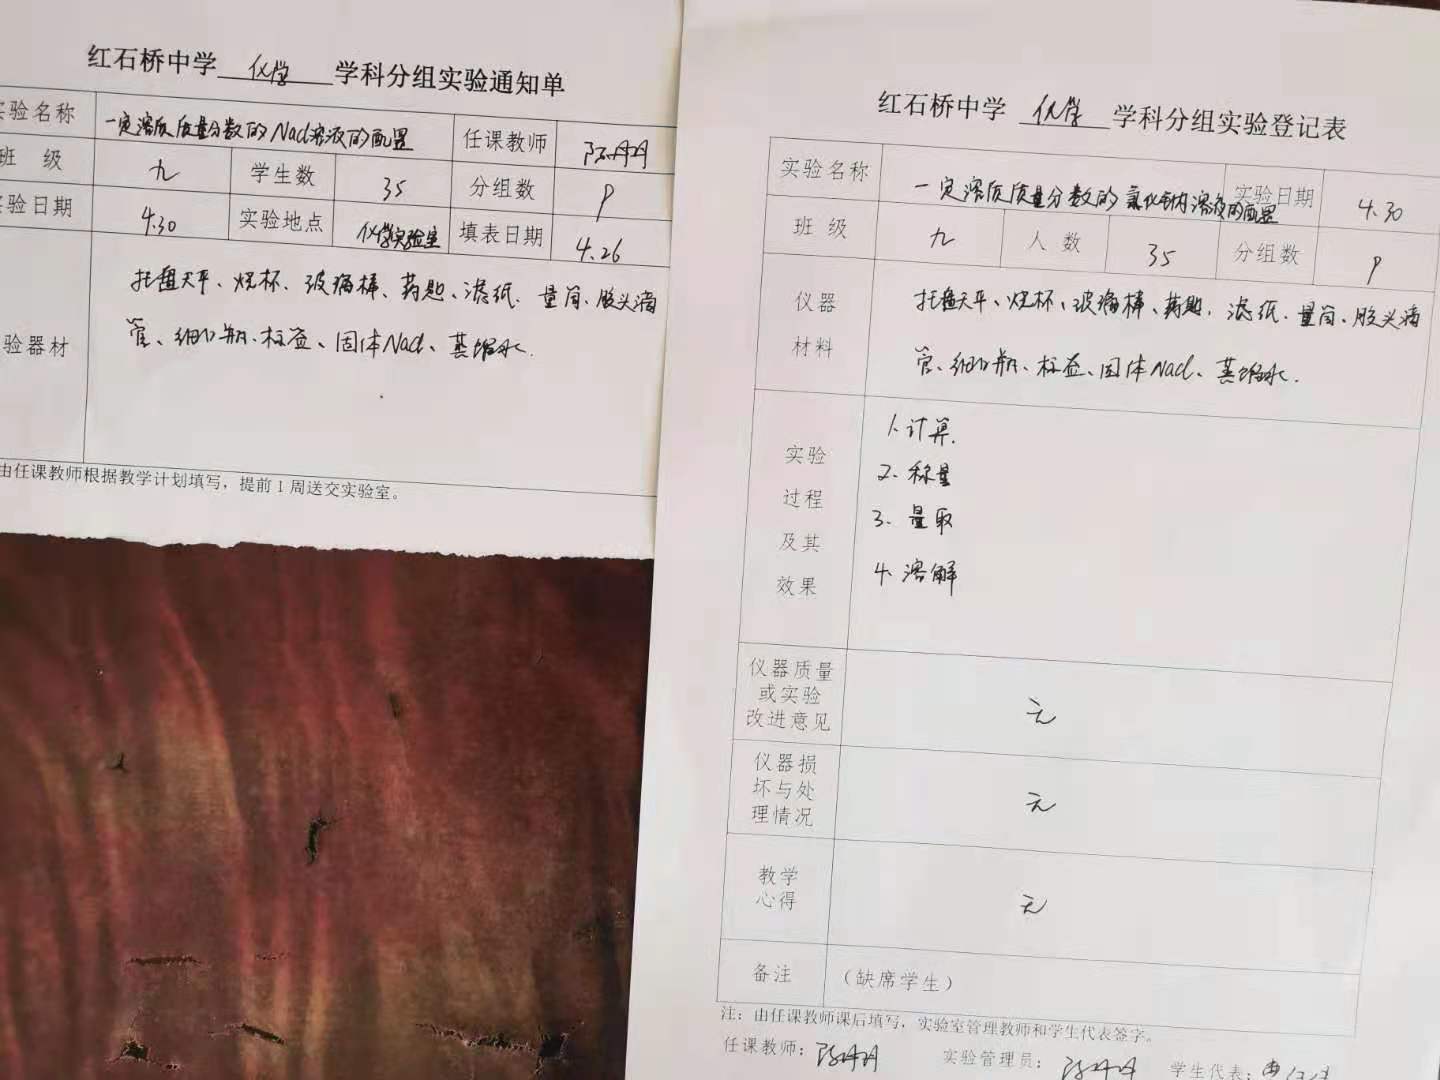 红石桥中学 化学 学科分组实验通知单
实验名称 一定溶质质量分数的NaCl溶液的配置 任课教师 陈丹丹
班 级 九 学生数 35 分组数 9
实验日期 4.30 实验地点 化学实验室 填表日期 4.26
验器材 托盘天平、烧杯、玻璃棒、药匙、滤纸、量筒、胶头滴
管、细口瓶、标签、固体NaCl、蒸馏水.
由任课教师根据教学计划填写，提前1周送交实验室。
红石桥中学 化学 学科分组实验登记表
实验名称 一定溶质质量分数的氯化钠溶液的配置 实验日期 4.30
班 级 九 人 数 35 分组数 9
仪器 托盘天平、烧杯、玻璃棒、药匙、滤纸、量筒、胶头滴
材料 管、细口瓶、标签、固体NaCl、蒸馏水.
实验
过程
及其
效果
1、计算.
2、称量
3、量取
4、溶解
仪器质量
或实验
改进意见
无
仪器损
坏与处
理情况
无
教学
心得
无
备注 （缺席学生）
注：由任课教师课后填写，实验室管理教师和学生代表签字。
任课教师：陈丹丹 实验管理员：陈丹丹 学生代表：